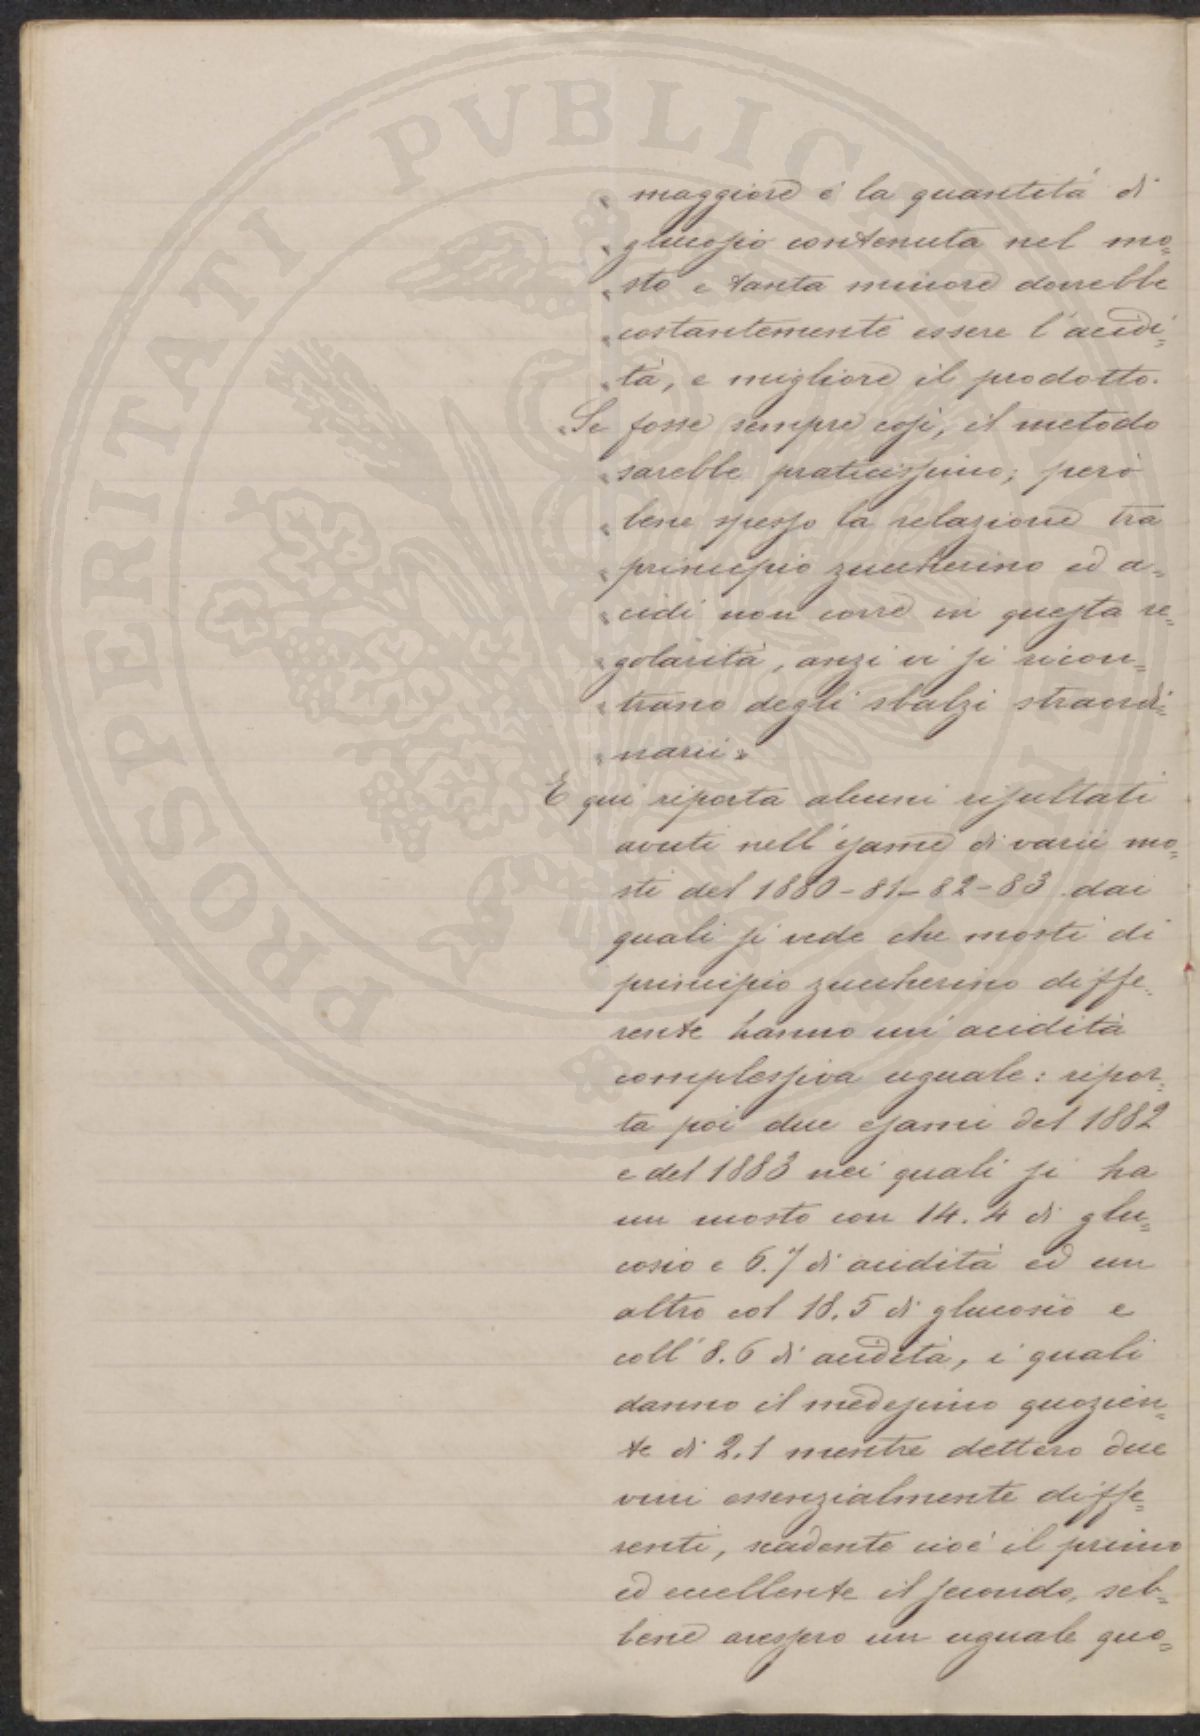 PROSPERITATI PVBLICE AVGENDAE
„ maggiore é la quantità di
„ glucosio contenuta nel mo=
„ sto e tanta minore dovrebbe
„ costantemente essere l'acidi=
„ tà, e migliore il prodotto.
„ Se fosse sempre così, il metodo
„ sarebbe praticissimo; però
„ bene spesso la relazione tra
„ principio zuccherino ed a=
„ cidi non corre in questa re=
„ golarità, anzi vi si ricon=
„ trano degli sbalzi straordi=
„ narii „
E qui riporta alcuni risultati
avuti nell'esame di varii mo=
sti del 1880-81-82-83 dai
quali si vede che mosti di
principio zuccherino diffe=
rente hanno un'acidità
complessiva uguale: ripor=
ta poi due esami del 1882
e del 1883 nei quali si ha
un mosto con 14.4 di glu=
cosio e 6.7 di acidità ed un
altro col 18.5 di glucosio e
coll'8.6 di acidità, i quali
danno il medesimo quozien=
te di 2.1 mentre dettero due
vini essenzialmente diffe=
renti, scadente cioé il primo
ed eccellente il secondo, seb=
bene avessero un uguale quo=